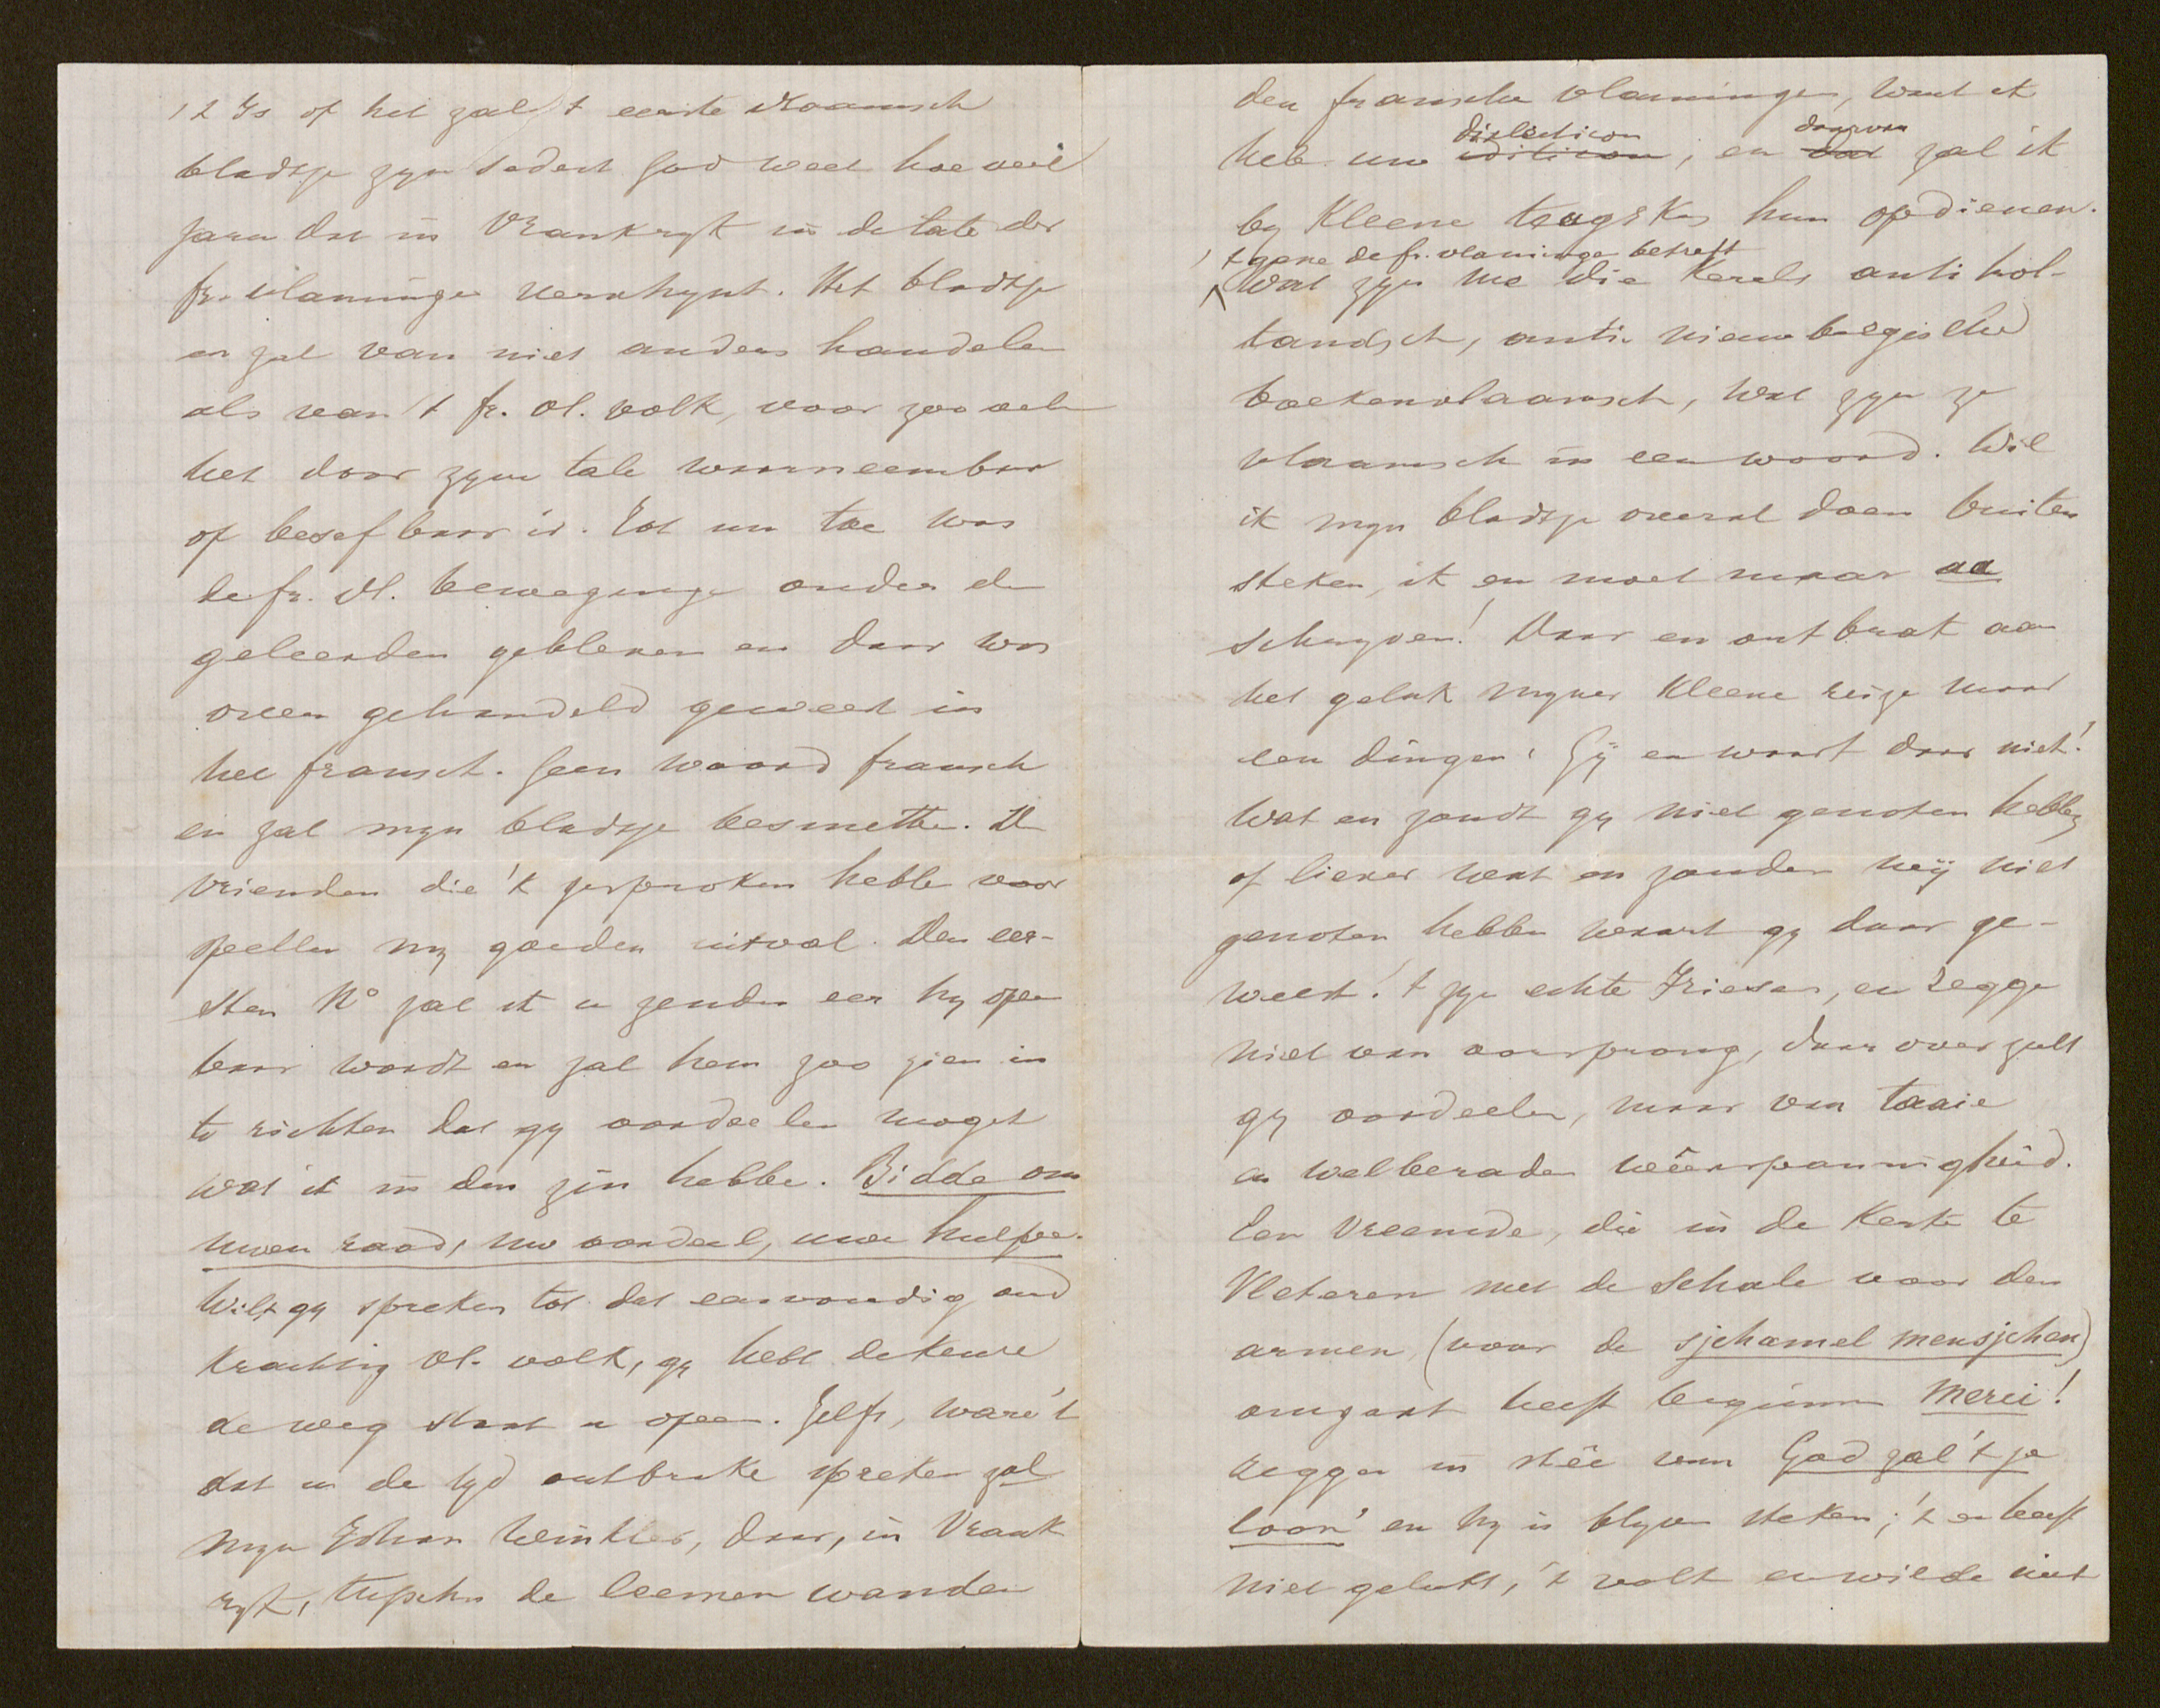 't Is of het zal 't eerste vlaamsch
bladtje zyn sedert God weet hoeveil
jaren dat in Vrankryk in de tale der
fr. vlamingen verschynt. Het bladtje
en zal van niet anders handelen
als van 't fr. vl. volk, voor zoo velen
het door zyne tale waarneembar
of besefbaar is. Tot nu toe was
de fr. vl. beweginge onder de
geleerden gebleven en daar was
over gehandeld geweest in
het fransch. Geen woord fransch
en zal myn bladtje besmetten. De
vrienden die 'k gesproken hebbe voor
spellen my goeden uitval. Den eer-
sten No zal ik u zenden eer hy open
baar wordt en zal hem zoo zien in
te richten dat gy oordeelen moget
wat ik in den zin hebbe. Bidde om
uwen raad, uw oordeel, uwe hulpe.
Wilt gy spreken tot dat eenvoudig oud
krachtig vl. volk, gy hebt de keure
de weg staat u open. Zelfs, ware 't
dat u de tyd ontbrake spreken zal
myn Johan Winkler, daar, in Vrank
ryk, tusschen de leemen wanden
den fransche vlamingen, want ik
heb uw iditicon dialecticon, en dat daarvan zal ik
by kleene teugskes hun opdienen.
't gene de fr. vlaminge betreft
Wat zyn me die kerels anti hol-
landsch, anti nieuwbelgisched
boekenvlaamsch, wat zyn ze
vlaamsch in een woord. Wil
ik myn bladtje overal doen buiten
steken, ik en moet maar aa
schryven! Daar en ontbrak aan
het geluk myner kleene reize maar
een dingen: Gÿ en waart daar niet!
Wat en zoudt gy niet genoten hebben
of liever wat en zouden wÿ niet
genoten hebben waart gy daar ge-
weest! 't zyn echte Friesen, en zegge
niet van oorsprong, daar over zult
gy oordeelen, maar van taaie
en welberaden wêerspannigheid.
Een vreemde, die in de kerke te
Vleteren met de schale voor den
armen (voor de sjchamel mensjchen)
omgaat heeft beginnen merci!
zeggen in stêe van God zal 't je
loon' en hy is blyven steken; 't en heeft
niet gelukt, 't volk en wilde niet